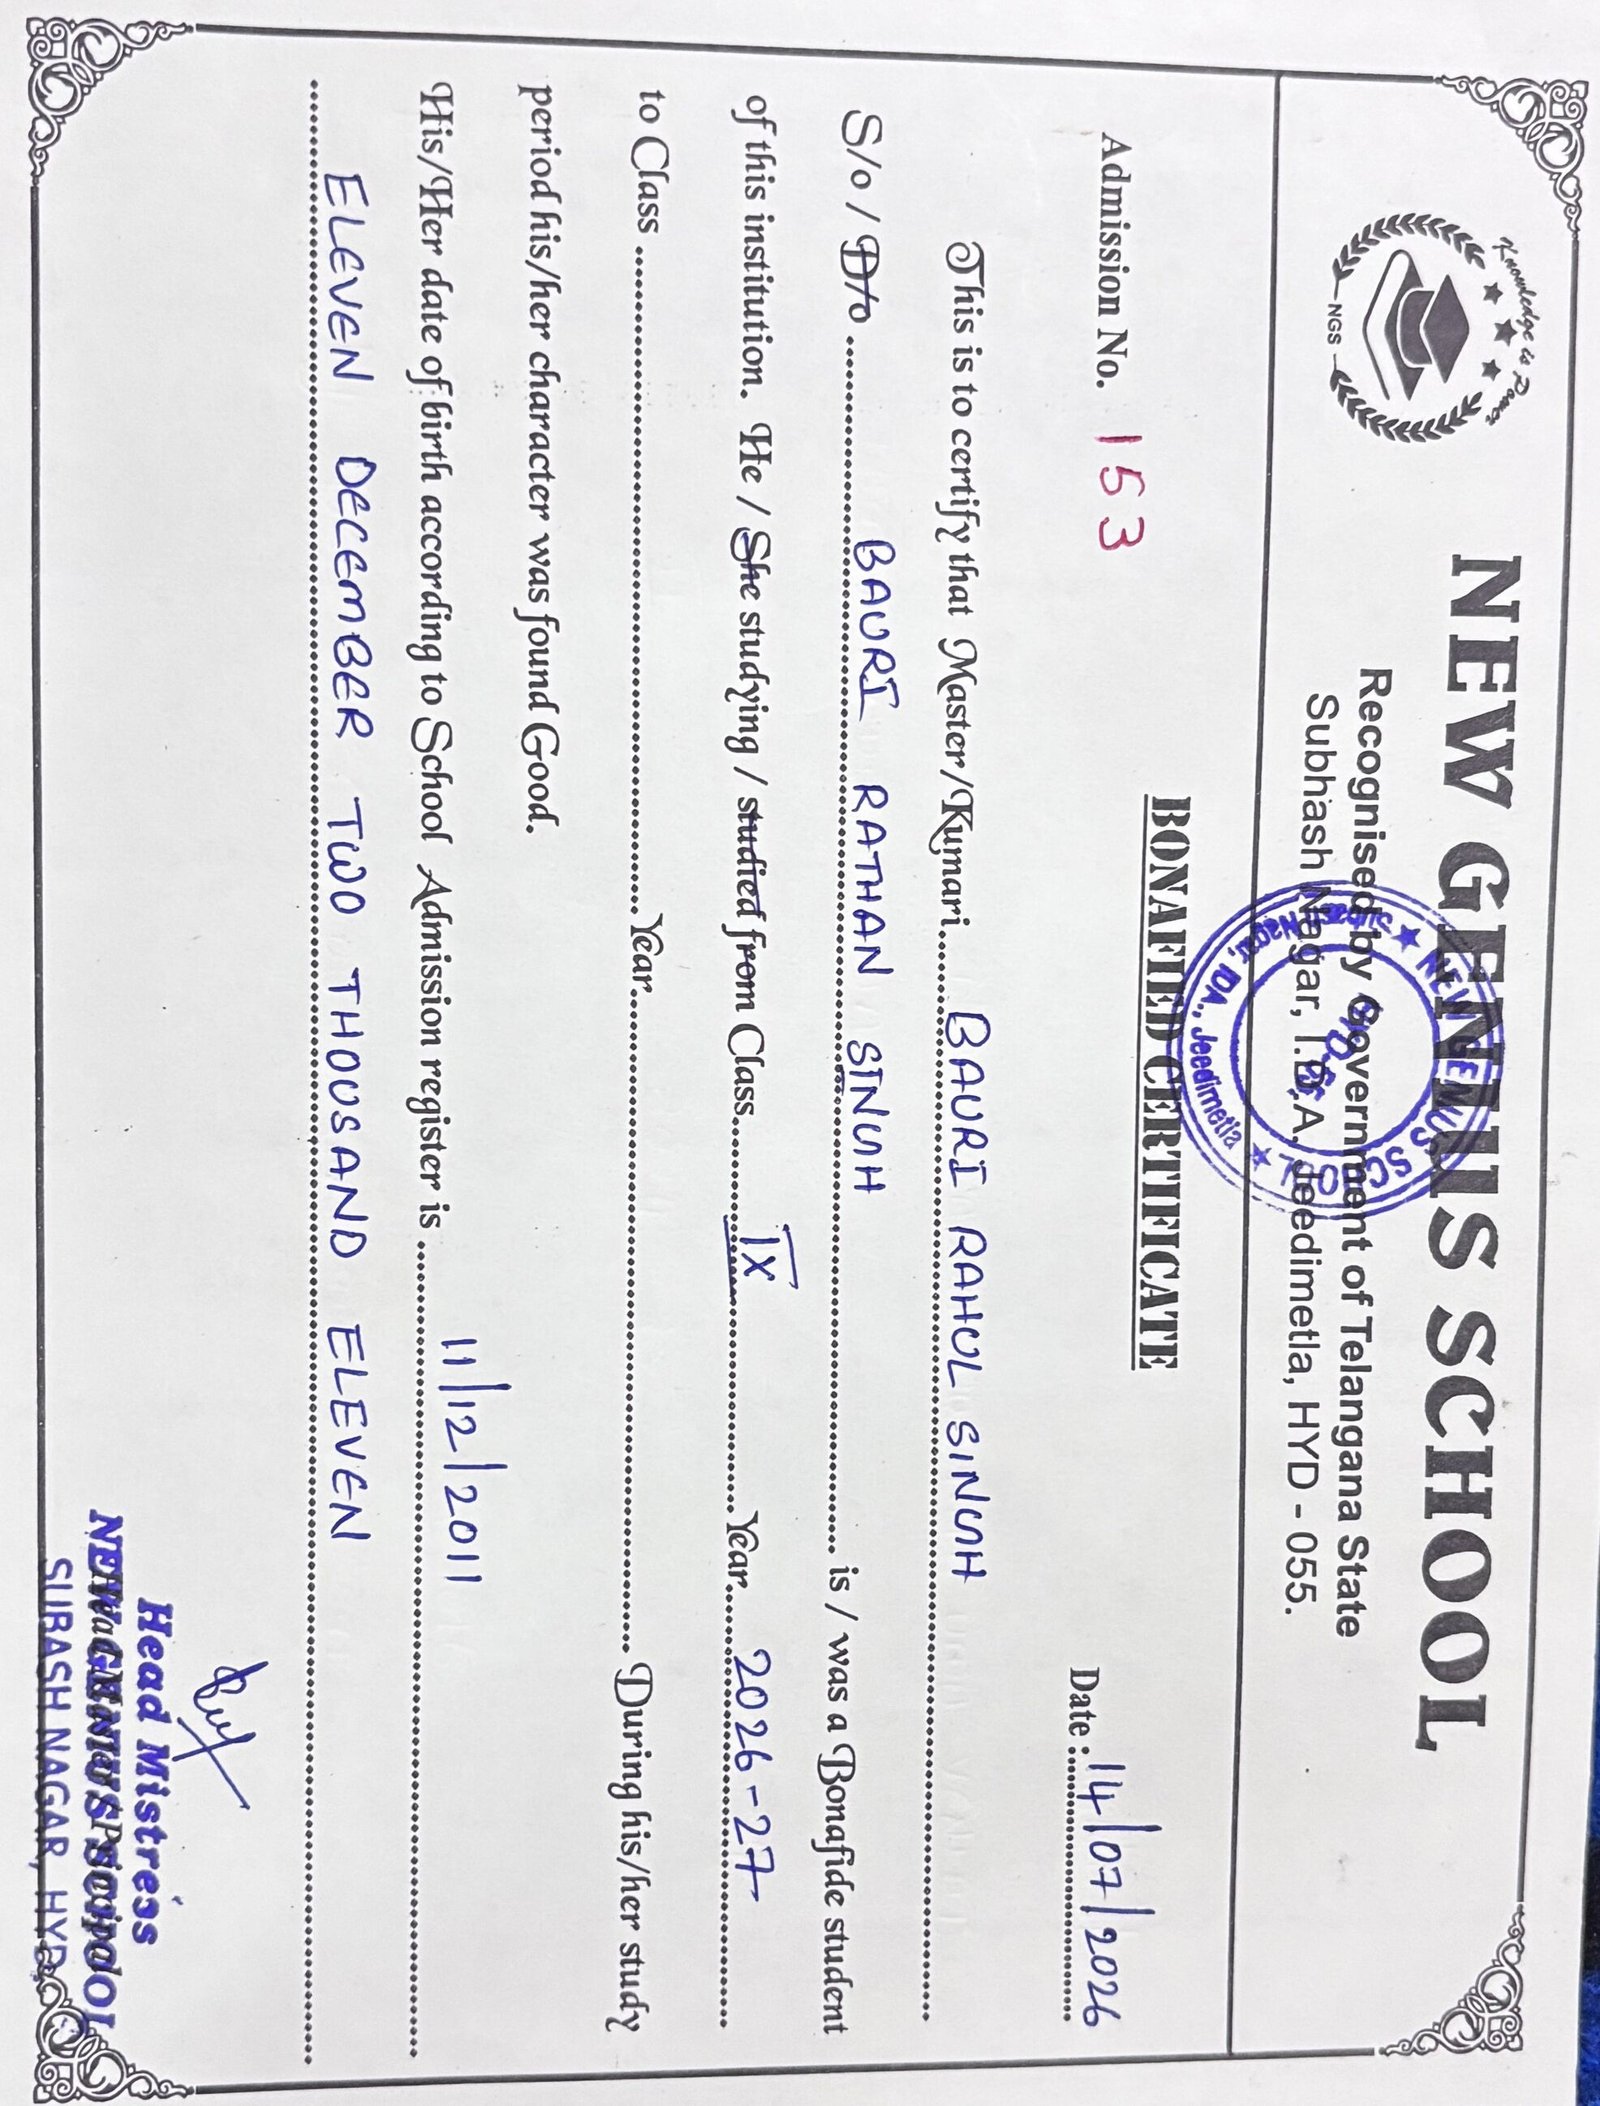 NEW GENIUS SCHOOL
Knowledge is Power
NGS
Recognised by Government of Telangana State
Subhash Nagar, I.D.A. Jeedimetla, HYD - 055.
★ NEW GENIUS SCHOOL ★
Subash Nagar, IDA., Jeedimetla
BONAFIED CERTIFICATE
Admission No. 153
Date : 14/07/2026
This is to certify that Master/Kumari BAURI RAHUL SINGH
S/o / D/o BAURI RATHAN SINGH is / was a Bonafide student
of this institution. He / She studying / studied from Class IX Year 2026-27
to Class Year During his/her study
period his/her character was found Good.
His/Her date of birth according to School Admission register is 11/12/2011
ELEVEN DECEMBER TWO THOUSAND ELEVEN
Head Mistress
NEW GENIUS SCHOOL
SUBASH NAGAR, HYD